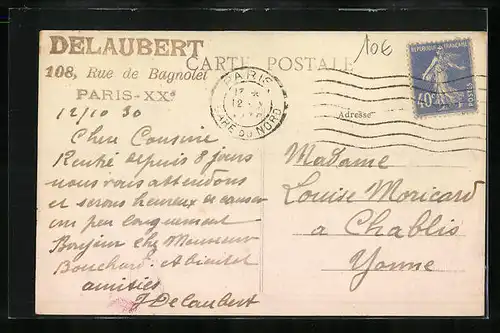 DELAUBERT
108, Rue de Bagnolet
PARIS-XXe
CARTE POSTALE
10€
PARIS
GARE DU NORD
REPUBLIQUE FRANÇAISE
40c
POSTES
Adresse
12/10 30
Chere Cousine
Rentré depuis 8 jours
nous vous attendons
et serons heureux de causer
un peu longuement
Bonjour chez Monsieur
Bouchard. A bientot
amitiés
J Delaubert
Madame
Louise Moricard
a Chablis
Yonne